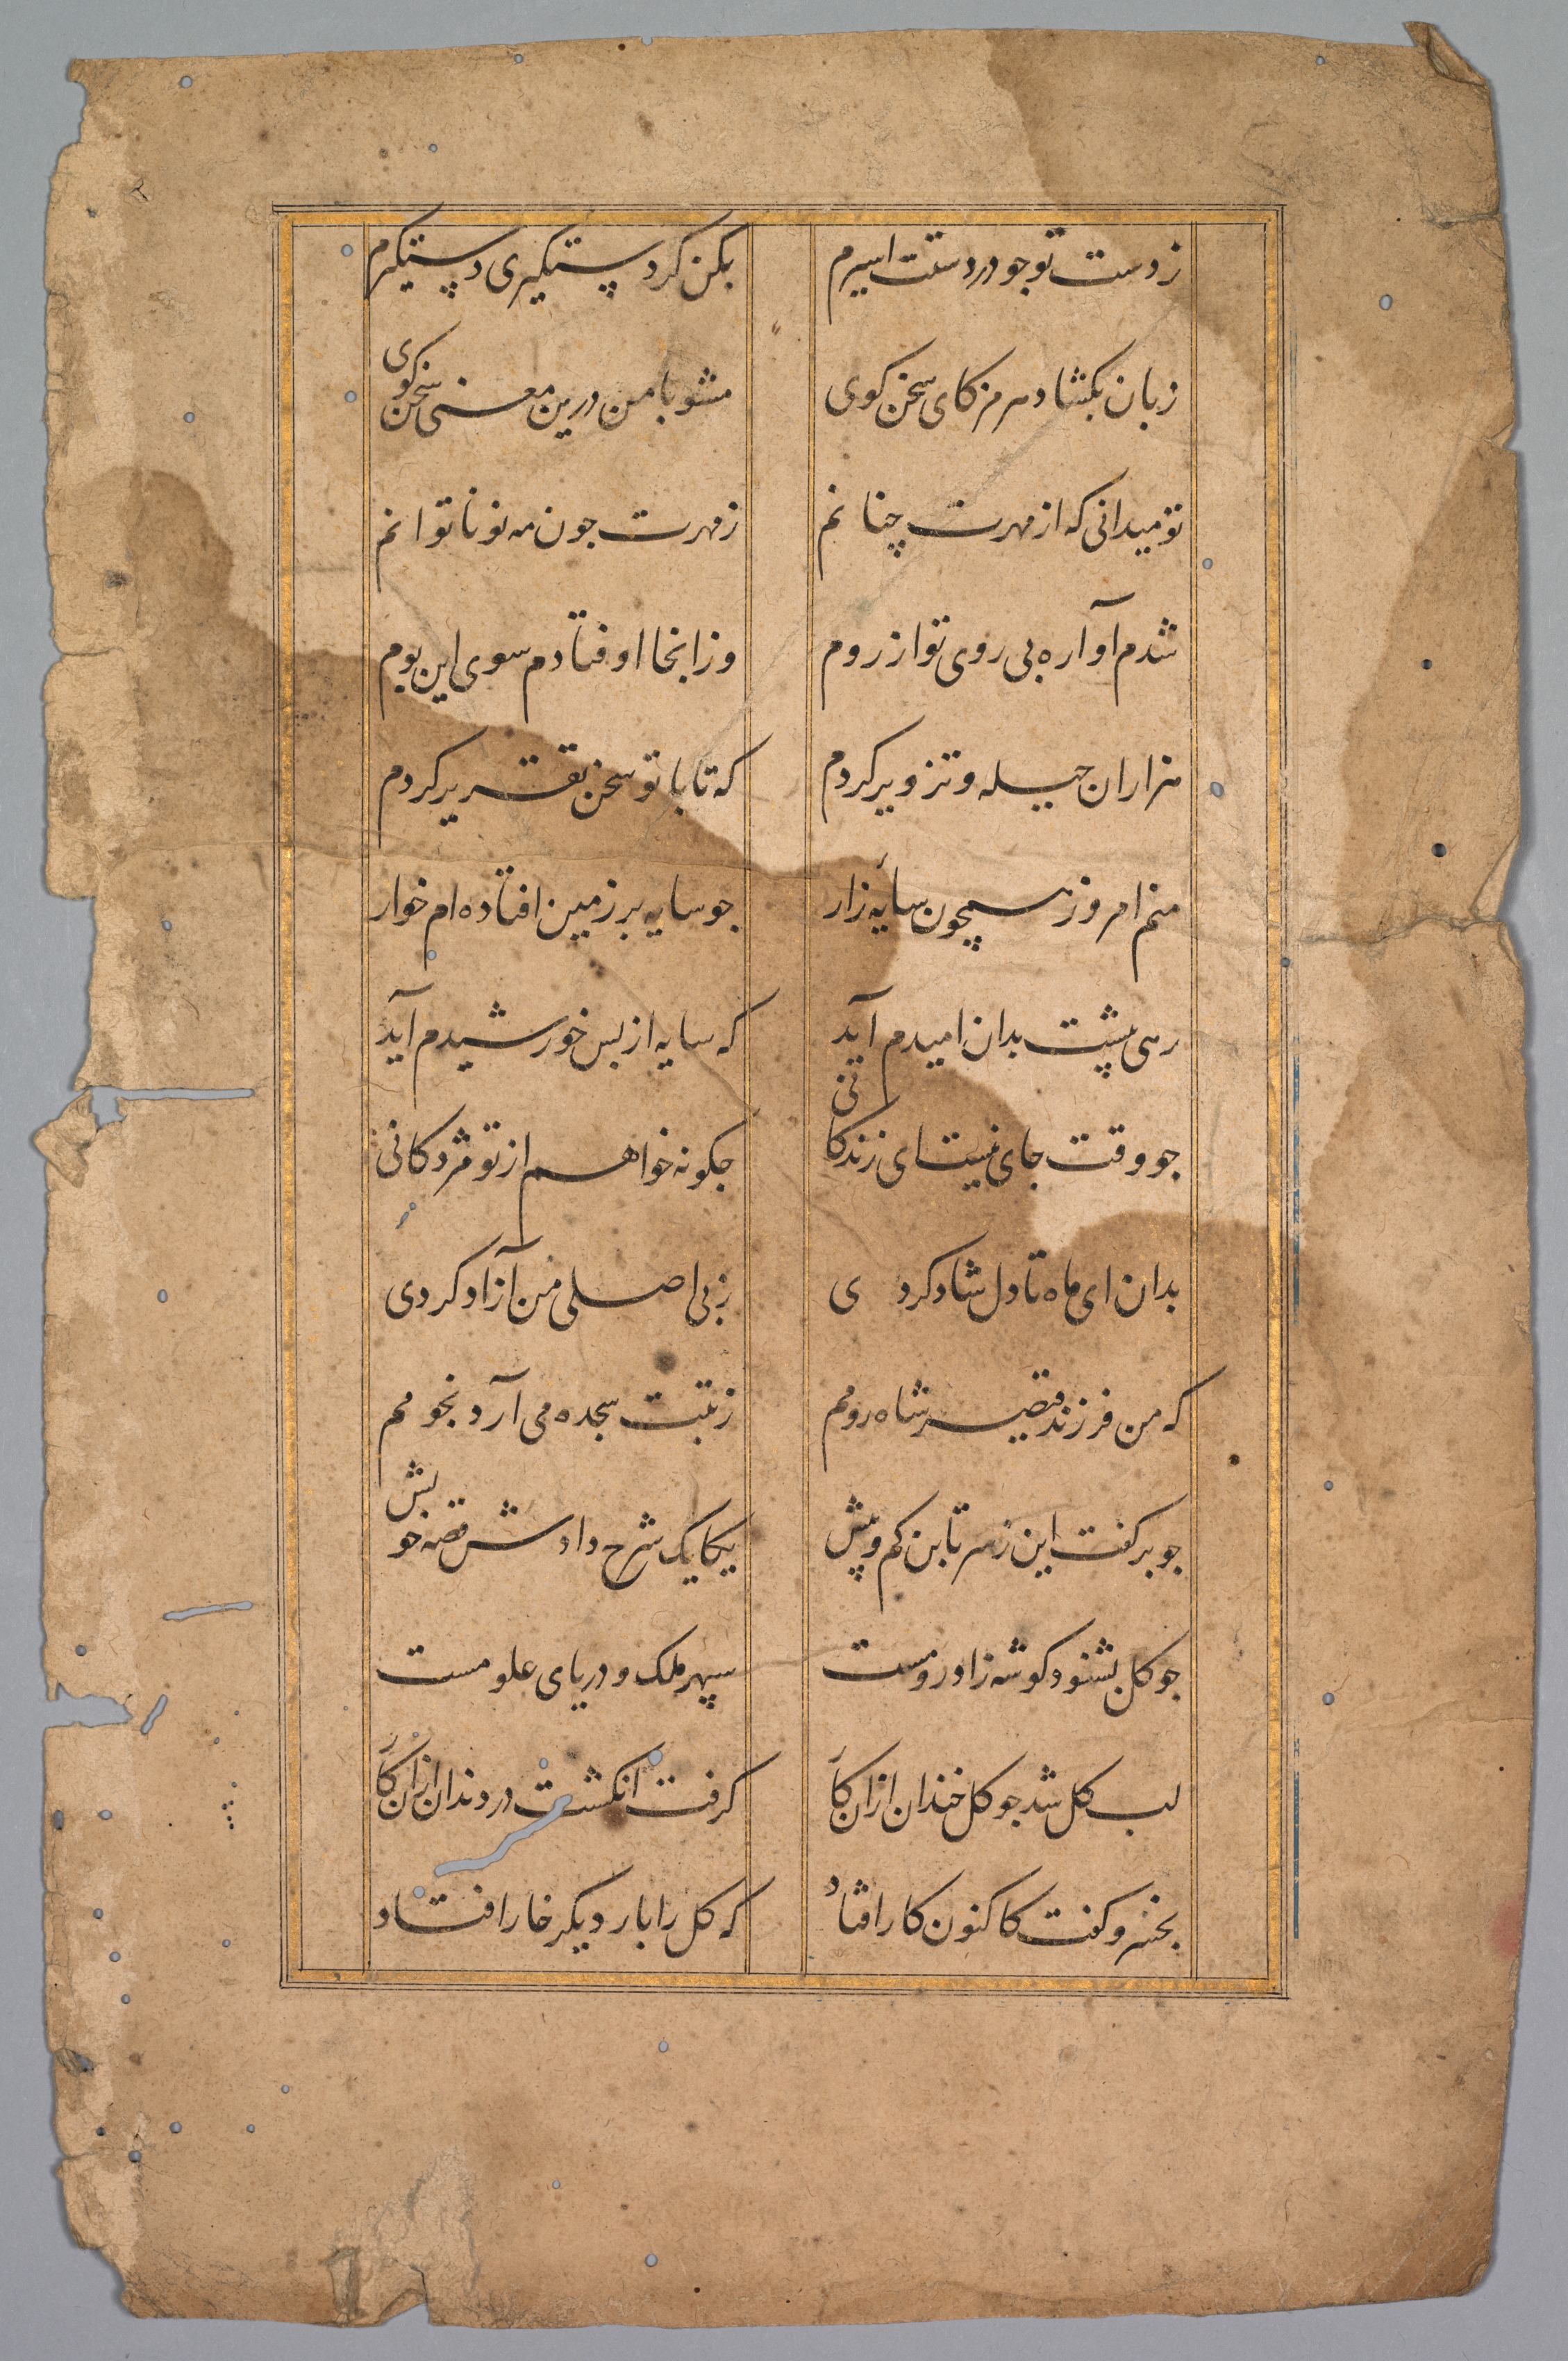 ز دست تو جو در دستت اسیرم بکن کر دستکیری دستکیرم
زبان بکشاد هرمز کای سخن کوی مشو با من درین معنی سخن کوی
تو میدانی که از مهرت چنانم ز مهرت جون مه نو ناتوانم
شدم آواره بی روی تو از روم وز انجا اوفتادم سوی این بوم
هزاران حیله و تزویر کردم که تا با تو سخن تقریر کردم
منم امروز همچون سایه زار جو سایه بر زمین افتاده‌ام خوار
رهی پشت بدان امیدم آید که سایه از پس خورشیدم آید
جو وقت جای نیست ای زندکانی جکونه خواهم از تو مژدکانی
بدان ای ماه تا دل شاد کردی ز بی اصلی من آزاد کردی
که من فرزند قیصر شاه رومم ز تبت سجده می آرد نجومم
جو بر کفت این ز سر تا بن کم و بیش یکایک شرح دادش قصه خویش
جو کل بشنود کو شه زاد رومست سپهر ملک و دریای علومست
لب کل شد جو کل خندان ازان کار کرفت انکشت در دندان ازان کار
بخسرو کفت کاکنون کار افتاد که کل را بار دیکر خار افتاد